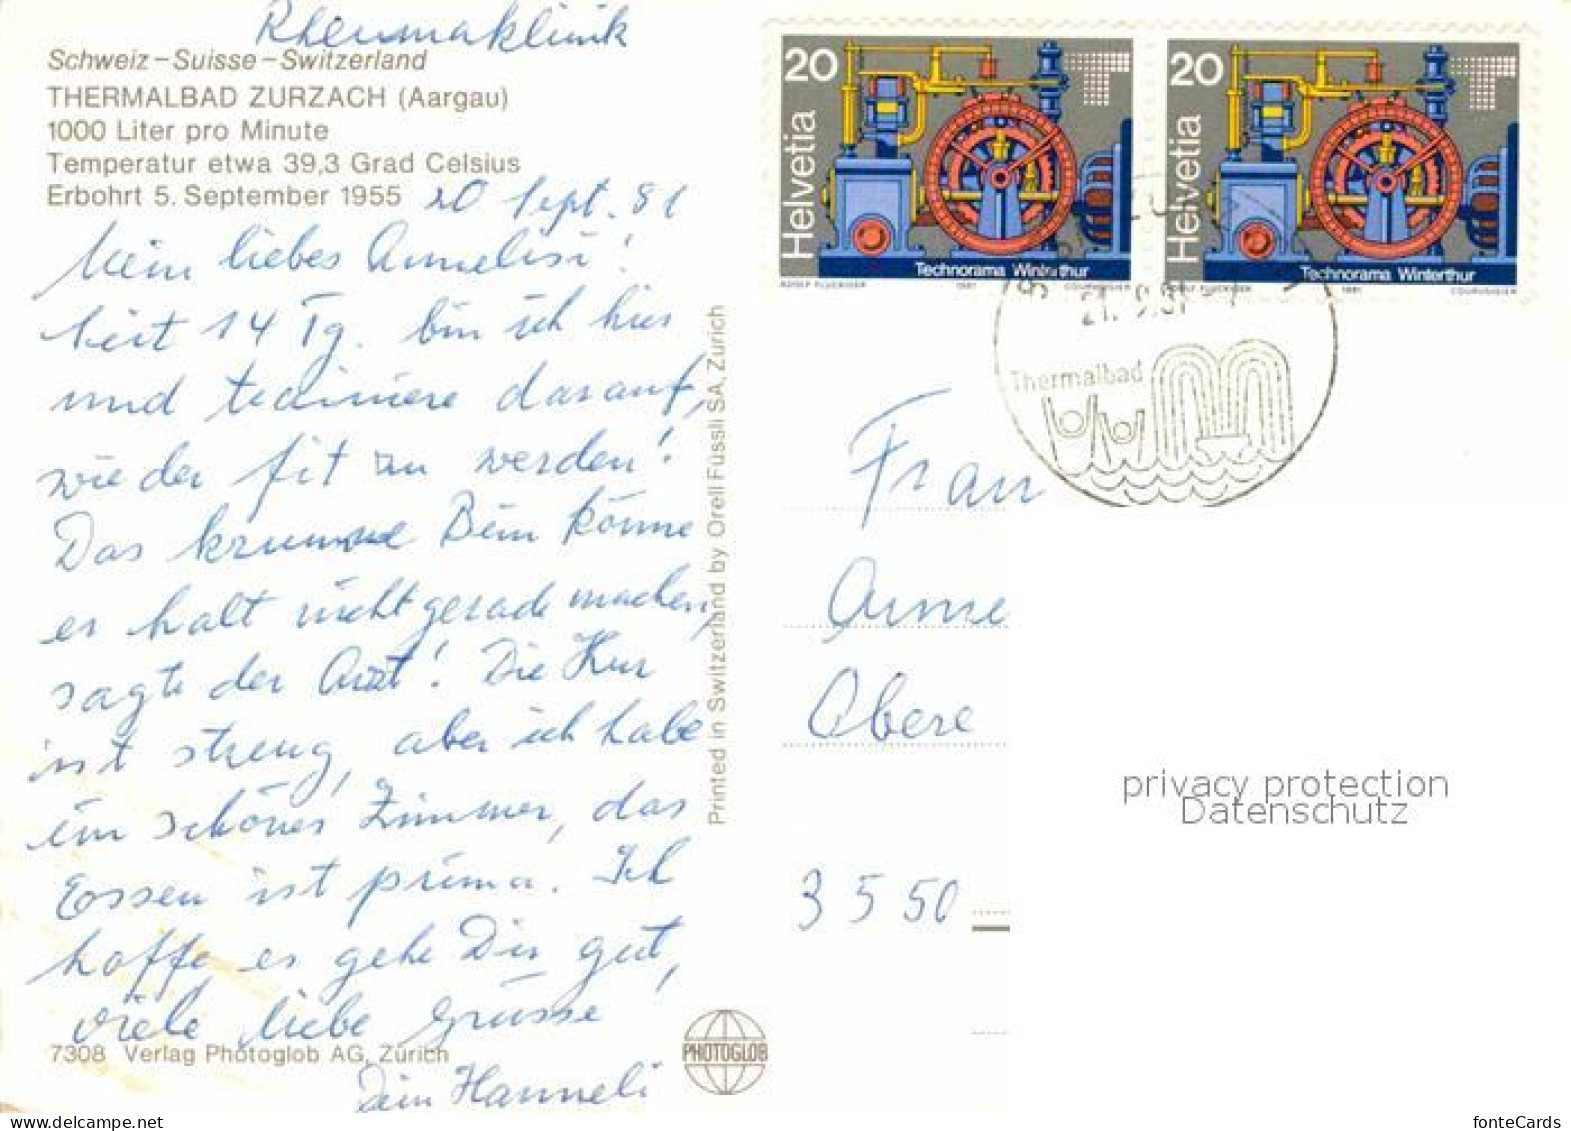 Rheumaklinik
Schweiz – Suisse – Switzerland
THERMALBAD ZURZACH (Aargau)
1000 Liter pro Minute
Temperatur etwa 39,3 Grad Celsius
Erbohrt 5. September 1955
20 Sept. 81
Mein liebes Annelisi!
Seit 14 Tg. bin ich hier
und trainiere darauf,
wieder fit zu werden!
Das krumme Bein könne
er halt nicht gerade machen,
sagte der Arzt! Die Kur
ist streng, aber ich habe
ein schönes Zimmer, das
Essen ist prima. Ich
hoffe es gehe Dir gut,
viele liebe Grüsse
Dein Hanneli
7308 Verlag Photoglob AG, Zürich
PHOTOGLOB
Printed in Switzerland by Orell Füssli SA, Zürich
20 Helvetia
Technorama Winterthur
1981 COURVOISIER
20 Helvetia
Technorama Winterthur
1981 COURVOISIER
21. 9.81
Thermalbad
Frau
Anne
Obere
3550
privacy protection
Datenschutz
fonteCards